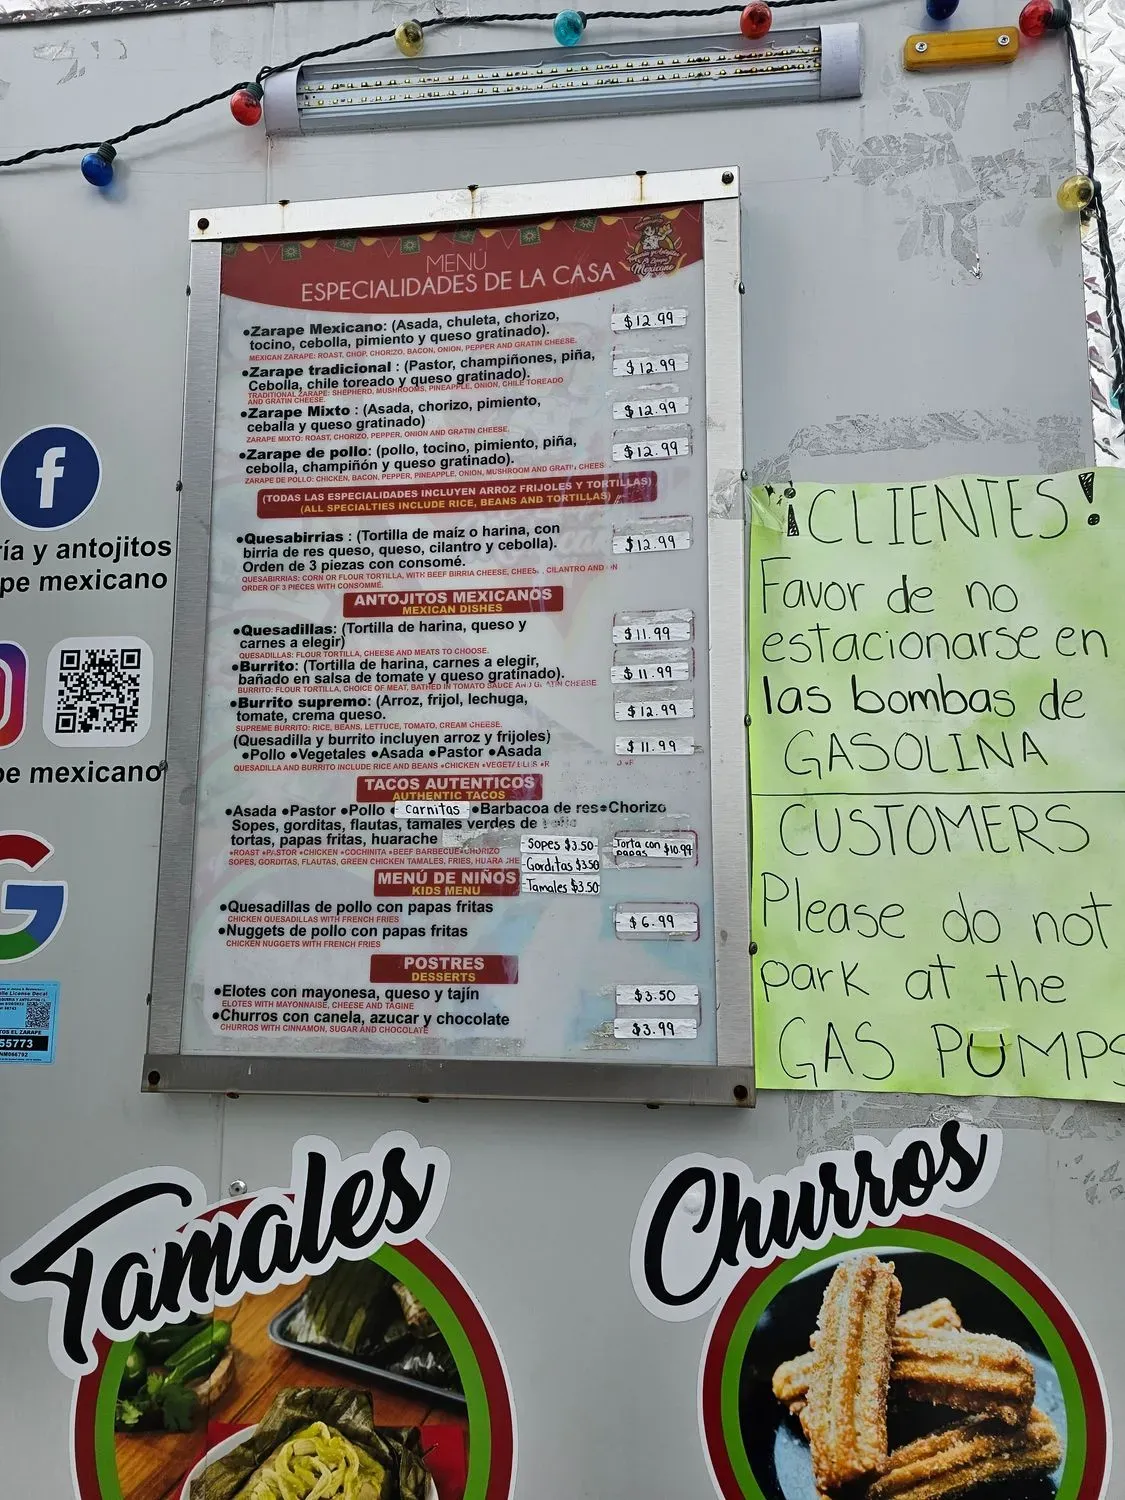 MENÚ
ESPECIALIDADES DE LA CASA
Mexicano
•Zarape Mexicano: (Asada, chuleta, chorizo,
tocino, cebolla, pimiento y queso gratinado).
MEXICAN ZARAPE: ROAST, CHOP, CHORIZO, BACON, ONION, PEPPER AND GRATIN CHEESE.
$12.99
•Zarape tradicional : (Pastor, champiñones, piña,
Cebolla, chile toreado y queso gratinado).
TRADITIONAL ZARAPE: SHEPHERD, MUSHROOMS, PINEAPPLE, ONION, CHILE TOREADO
AND GRATIN CHEESE.
$12.99
•Zarape Mixto : (Asada, chorizo, pimiento,
ceballa y queso gratinado)
ZARAPE MIXTO: ROAST, CHORIZO, PEPPER, ONION AND GRATIN CHEESE.
$12.99
•Zarape de pollo: (pollo, tocino, pimiento, piña,
cebolla, champiñón y queso gratinado).
ZARAPE DE POLLO: CHICKEN, BACON, PEPPER, PINEAPPLE, ONION, MUSHROOM AND GRATI CHEES
$12.99
(TODAS LAS ESPECIALIDADES INCLUYEN ARROZ FRIJOLES Y TORTILLAS)
(ALL SPECIALTIES INCLUDE RICE, BEANS AND TORTILLAS)
•Quesabirrias : (Tortilla de maíz o harina, con
birria de res queso, queso, cilantro y cebolla).
Orden de 3 piezas con consomé.
QUESABIRRIAS: CORN OR FLOUR TORTILLA, WITH BEEF BIRRIA CHEESE, CHEES , CILANTRO AND ON
ORDER OF 3 PIECES WITH CONSOMMÉ.
$12.99
ANTOJITOS MEXICANOS
MEXICAN DISHES
•Quesadillas: (Tortilla de harina, queso y
carnes a elegir)
QUESADILLAS: FLOUR TORTILLA, CHEESE AND MEATS TO CHOOSE.
$11.99
•Burrito: (Tortilla de harina, carnes a elegir,
bañado en salsa de tomate y queso gratinado).
BURRITO: FLOUR TORTILLA, CHOICE OF MEAT, BATHED IN TOMATO SAUCE AND GRATIN CHEESE
$11.99
•Burrito supremo: (Arroz, frijol, lechuga,
tomate, crema queso.
SUPREME BURRITO: RICE, BEANS, LETTUCE, TOMATO, CREAM CHEESE.
$12.99
(Quesadilla y burrito incluyen arroz y frijoles)
•Pollo •Vegetales •Asada •Pastor •Asada
QUESADILLA AND BURRITO INCLUDE RICE AND BEANS •CHICKEN •VEGETABLES
$11.99
TACOS AUTENTICOS
AUTHENTIC TACOS
•Asada •Pastor •Pollo • Carnitas •Barbacoa de res•Chorizo
Sopes, gorditas, flautas, tamales verdes de
tortas, papas fritas, huarache
•ROAST •PASTOR •CHICKEN •COCHINITA •BEEF BARBECUE•CHORIZO
SOPES, GORDITAS, FLAUTAS, GREEN CHICKEN TAMALES, FRIES, HUARACHE
Sopes $3.50
Gorditas $3.50
Tamales $3.50
Torta con
papas $10.99
MENÚ DE NIÑOS
KIDS MENU
•Quesadillas de pollo con papas fritas
CHICKEN QUESADILLAS WITH FRENCH FRIES
•Nuggets de pollo con papas fritas
CHICKEN NUGGETS WITH FRENCH FRIES
$6.99
POSTRES
DESSERTS
•Elotes con mayonesa, queso y tajín
ELOTES WITH MAYONNAISE, CHEESE AND TAGINE
$3.50
•Churros con canela, azucar y chocolate
CHURROS WITH CINNAMON, SUGAR AND CHOCOLATE
$3.99
¡CLIENTES!
Favor de no
estacionarse en
las bombas de
GASOLINA
CUSTOMERS
Please do not
park at the
GAS PUMPS
f
ía y antojitos
pe mexicano
pe mexicano
G
55773
Tamales
Churros